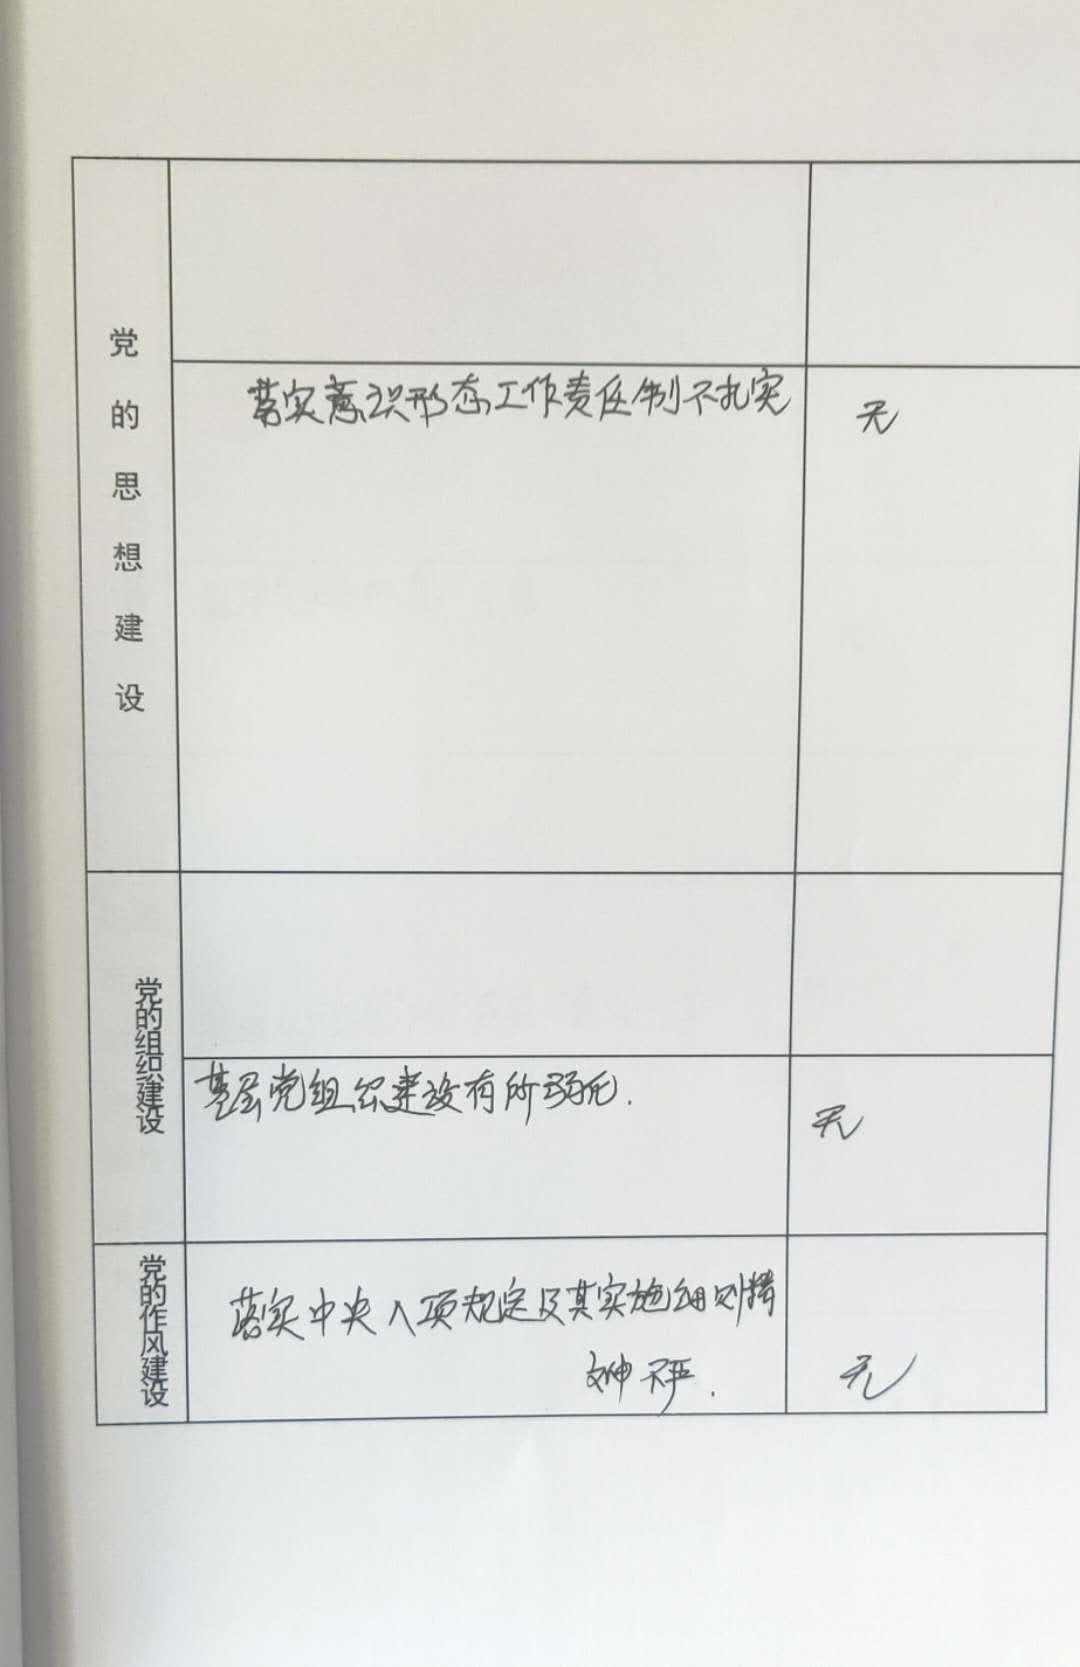 党的思想建设
落实意识形态工作责任制不扎实
无
党的组织建设
基层党组织建设有所弱化.
无
党的作风建设
落实中央八项规定及其实施细则精
神不严.
无